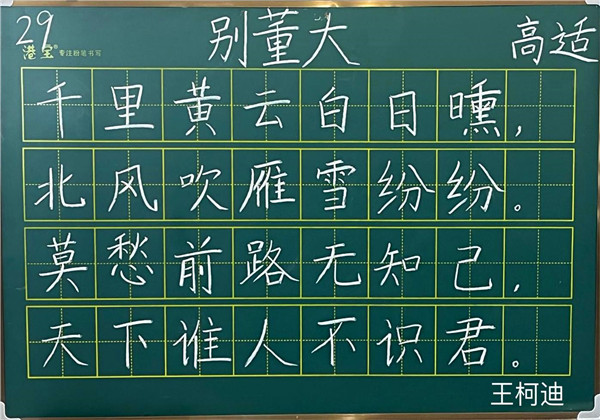 29
别董大 高适
港宝® 专注粉笔书写
千里黄云白日曛,
北风吹雁雪纷纷。
莫愁前路无知己,
天下谁人不识君。
王柯迪